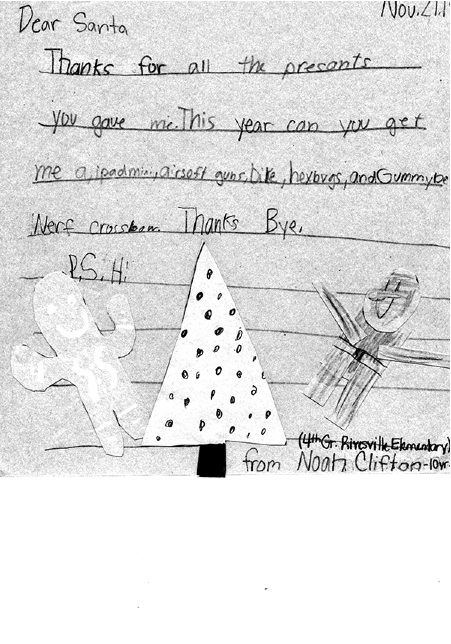 Nov. 21, 1
Dear Santa
Thanks for all the presants
you gave me. This year can you get
me a, ipadmini, airsoft guns, bike, hexbugs, and Gummybe
Nerf crossbow Thanks Bye.
P.S. Hi
(4th Gr. Rivesville Elementary)
from Noah Clifton-10yr.